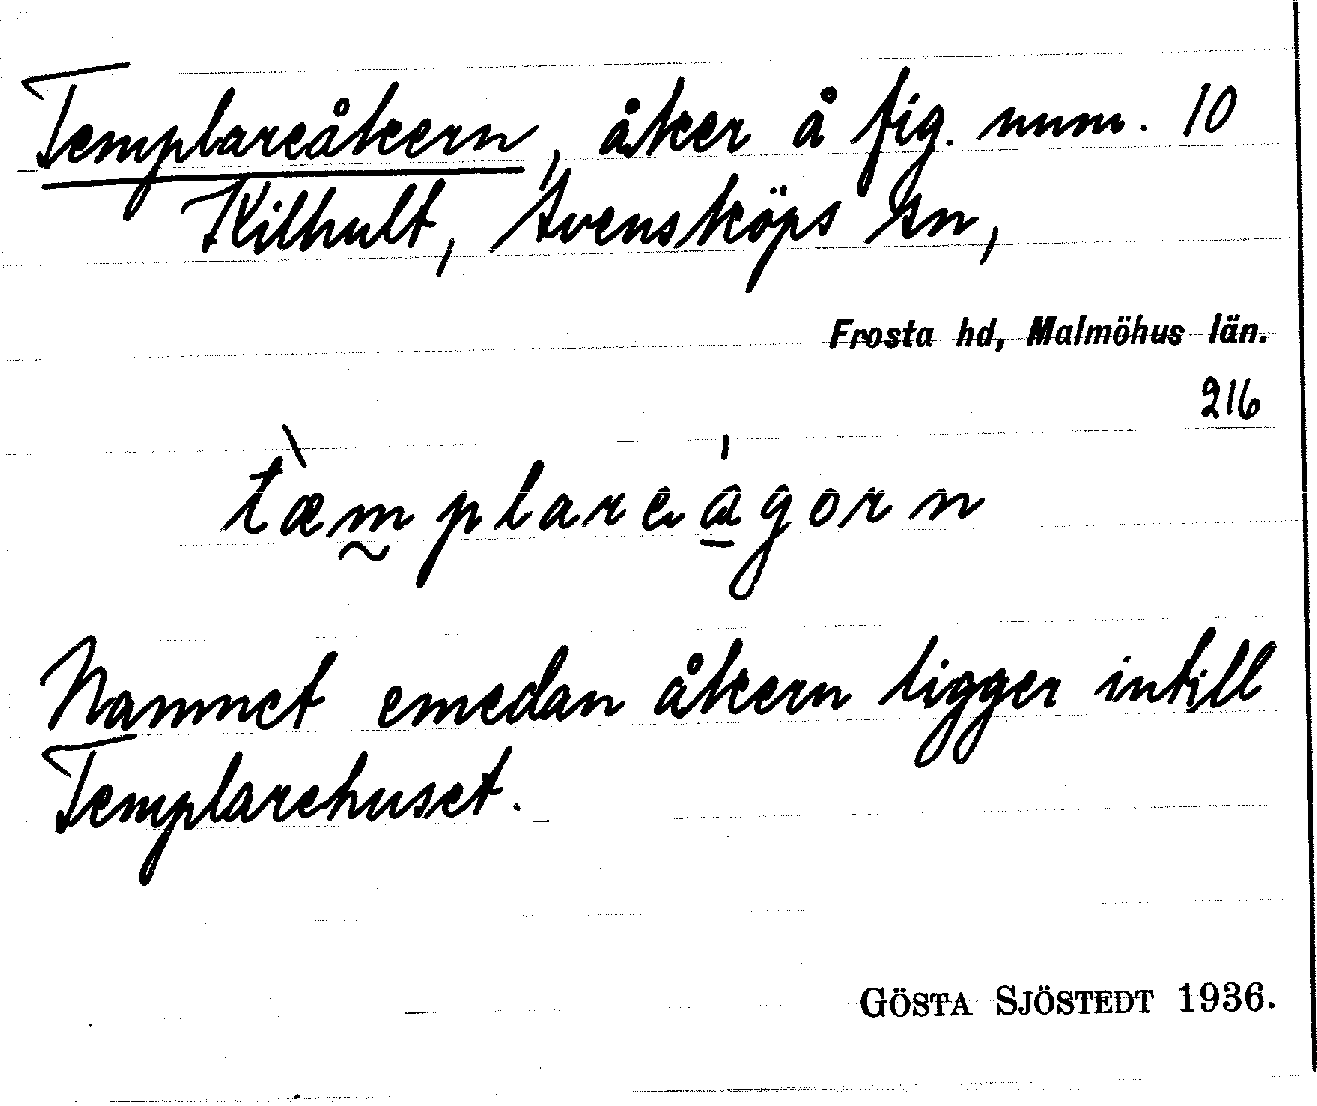 Templareåkern, åker å fig. num. 10
Kilhult, Svensköps sn,
Frosta hd, Malmöhus län.
216
tæ̀m̰plareágorn
Namnet emedan åkern ligger intill
Templarehuset.
GÖSTA SJÖSTEDT 1936.